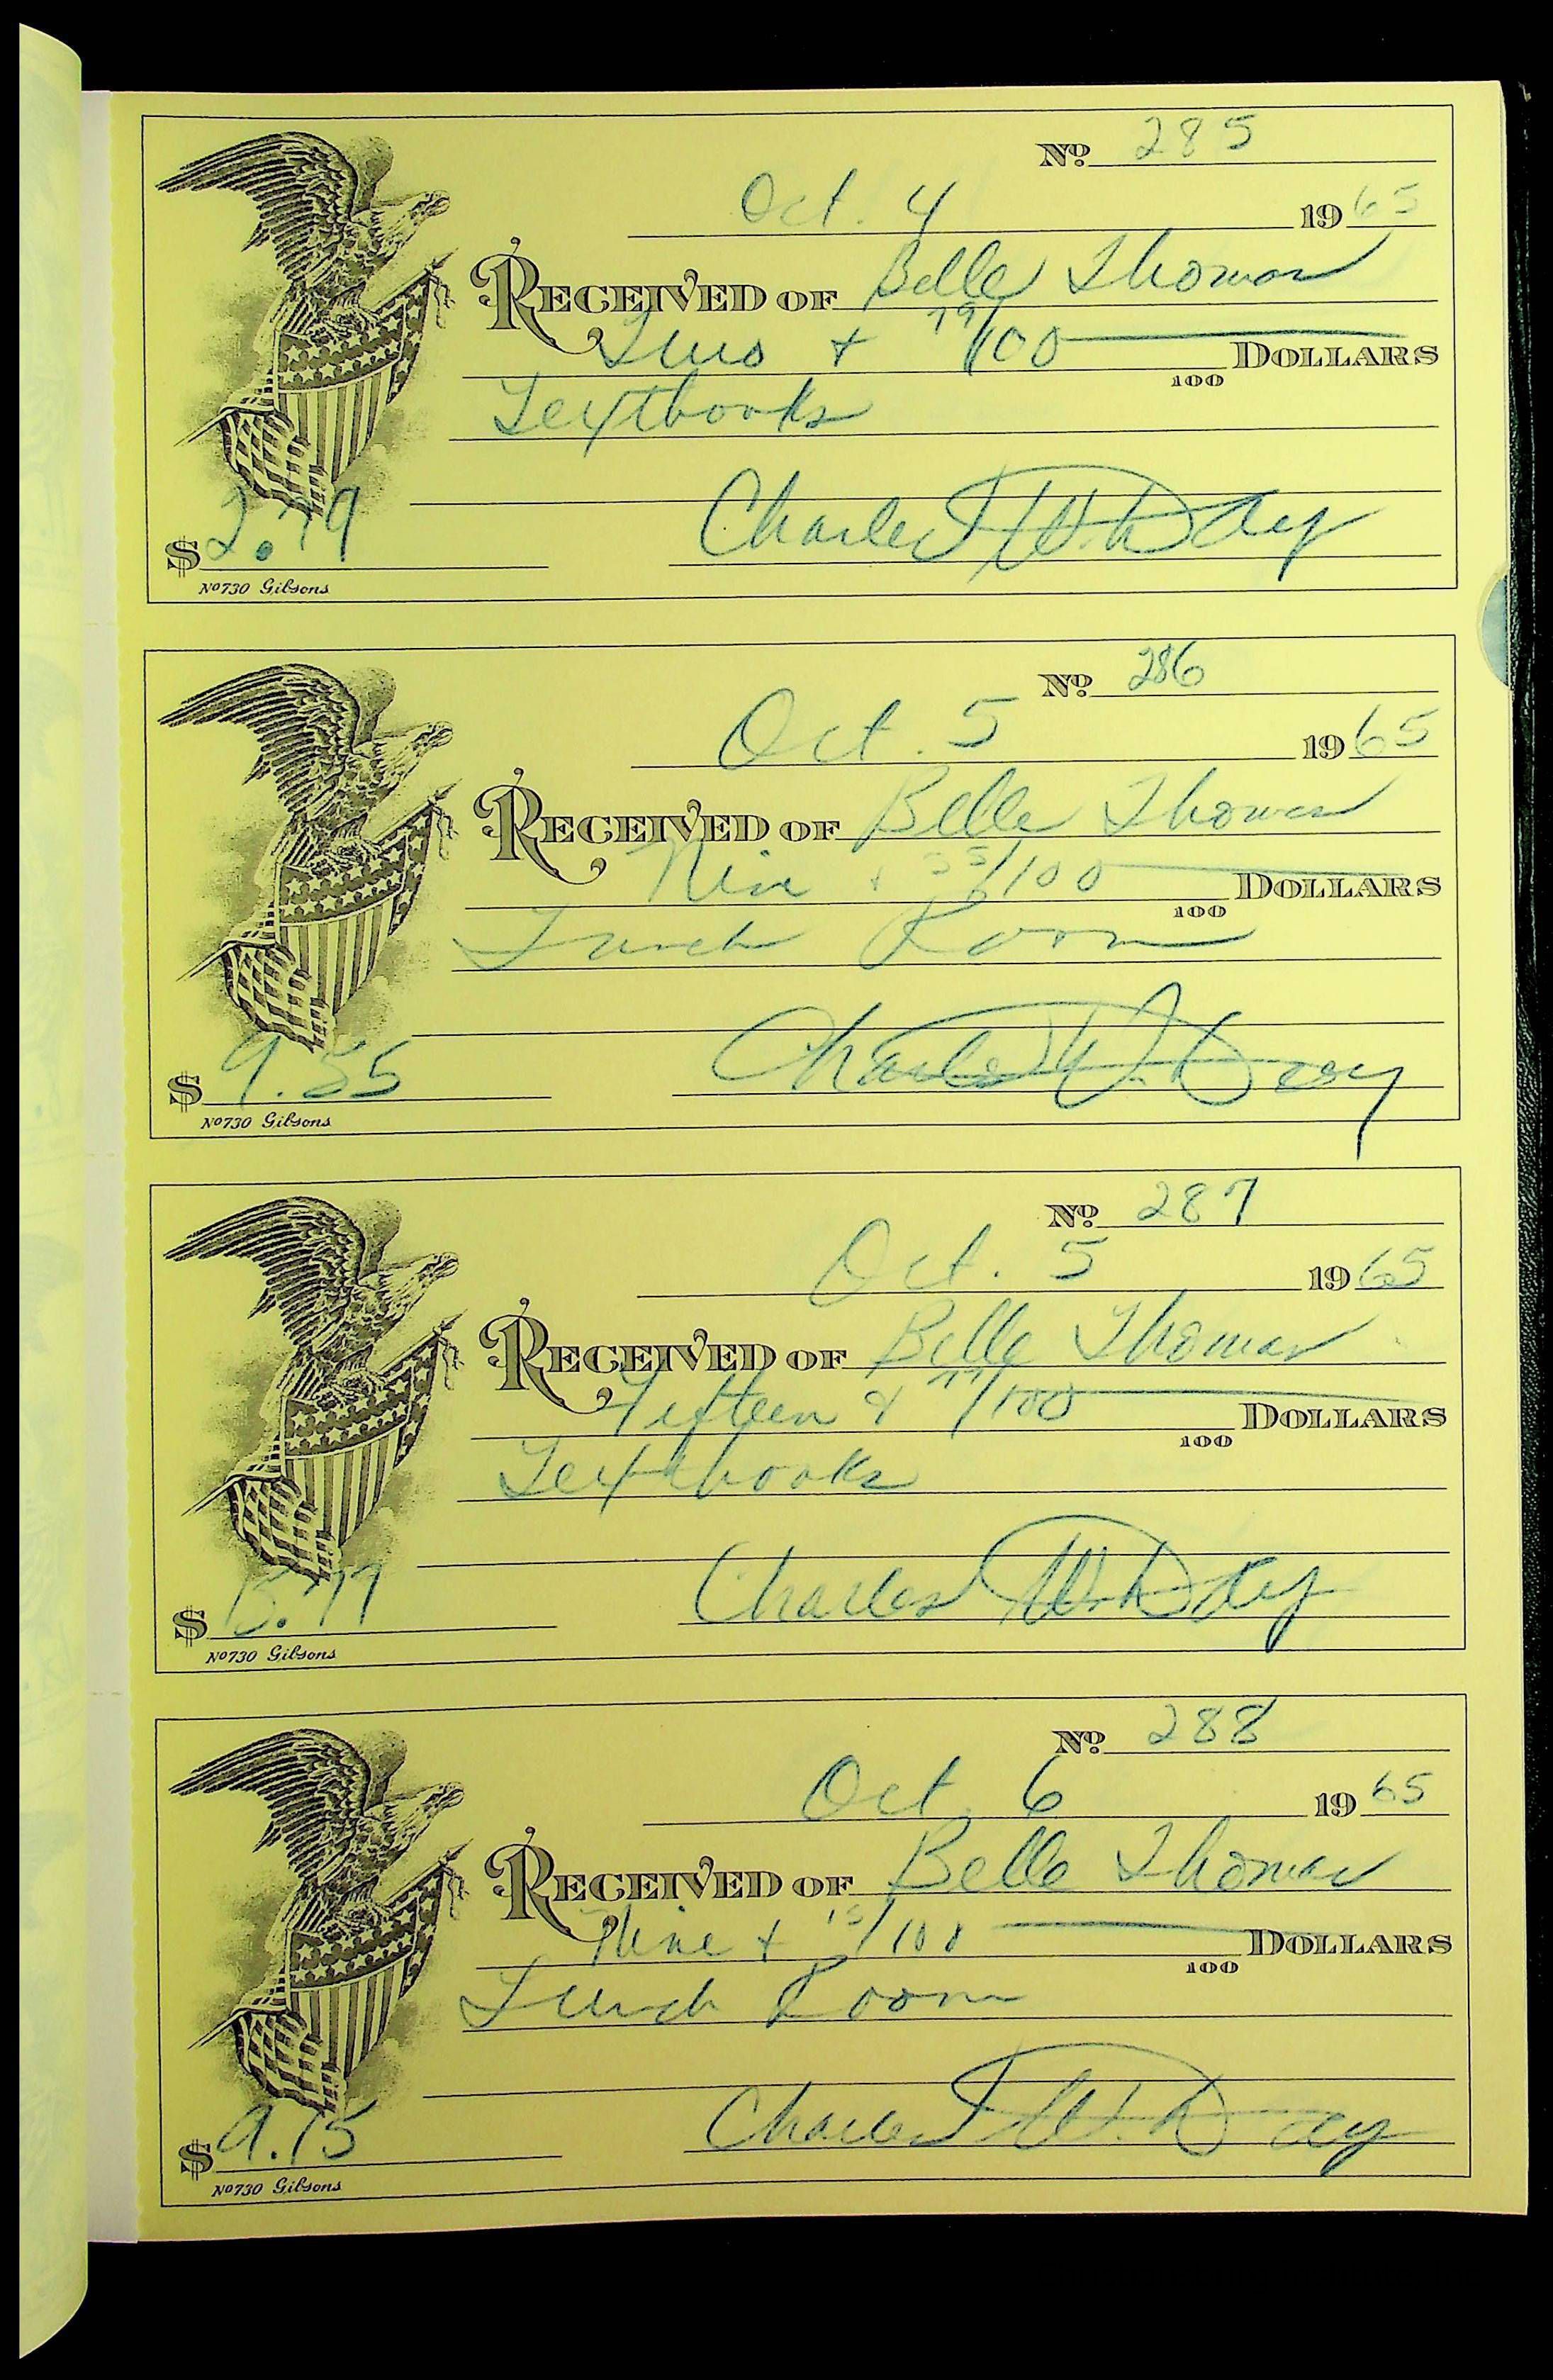 No 285
Oct. 4 1965
RECEIVED OF Belle Thomas
Two + 79/100 100 DOLLARS
Textbooks
Charles W. Day
$ 2.79
No730 Gibsons
No 286
Oct. 5 1965
RECEIVED OF Belle Thomas
Nine + 55/100 100 DOLLARS
Lunch Room
Charles W. Day
$ 9.55
No730 Gibsons
No 287
Oct. 5 1965
RECEIVED OF Belle Thomas
Fifteen & 77/100 100 DOLLARS
Textbooks
Charles W. Day
$ 15.77
No730 Gibsons
No 288
Oct. 6 1965
RECEIVED OF Belle Thomas
Nine + 15/100 100 DOLLARS
Lunch Room
Charles W. Day
$ 9.15
No730 Gibsons